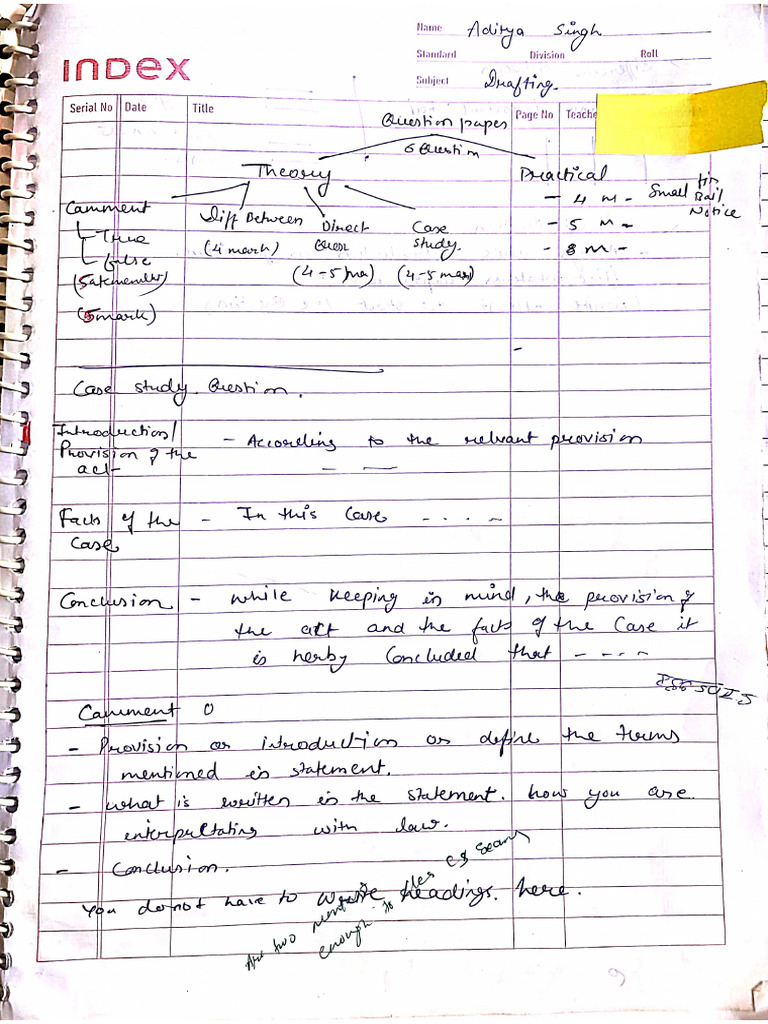 Name Aditya Singh
Standard Division Roll
INDEX
Subject Drafting.
Serial No Date Title Page No Teache
Question paper
6 Question
Theory Practical
- 4 M - Small Bail Notice
- 5 M -
- 8 M -
Camment
True
false
(Satements)
(5 mark)
Diff Between
(4 mark)
Direct
Ques
(4-5 ma)
Case
study.
(4-5 mar)
-
Case study Question.
Introduction/ - According to the relvant provision
Provision of the
act -
Facts of the - In this Case ....
Case
Conclusion - while keeping in mind, the provision of
the act and the facts of the Case it
is herby Concluded that - - - -
Camment
- Provision or introduction or define the terms
mentioned in statement.
- what is written in the statement. how you are
interpultating with law.
- Conclusion.
You do not have to write headings. here.
are two
enough